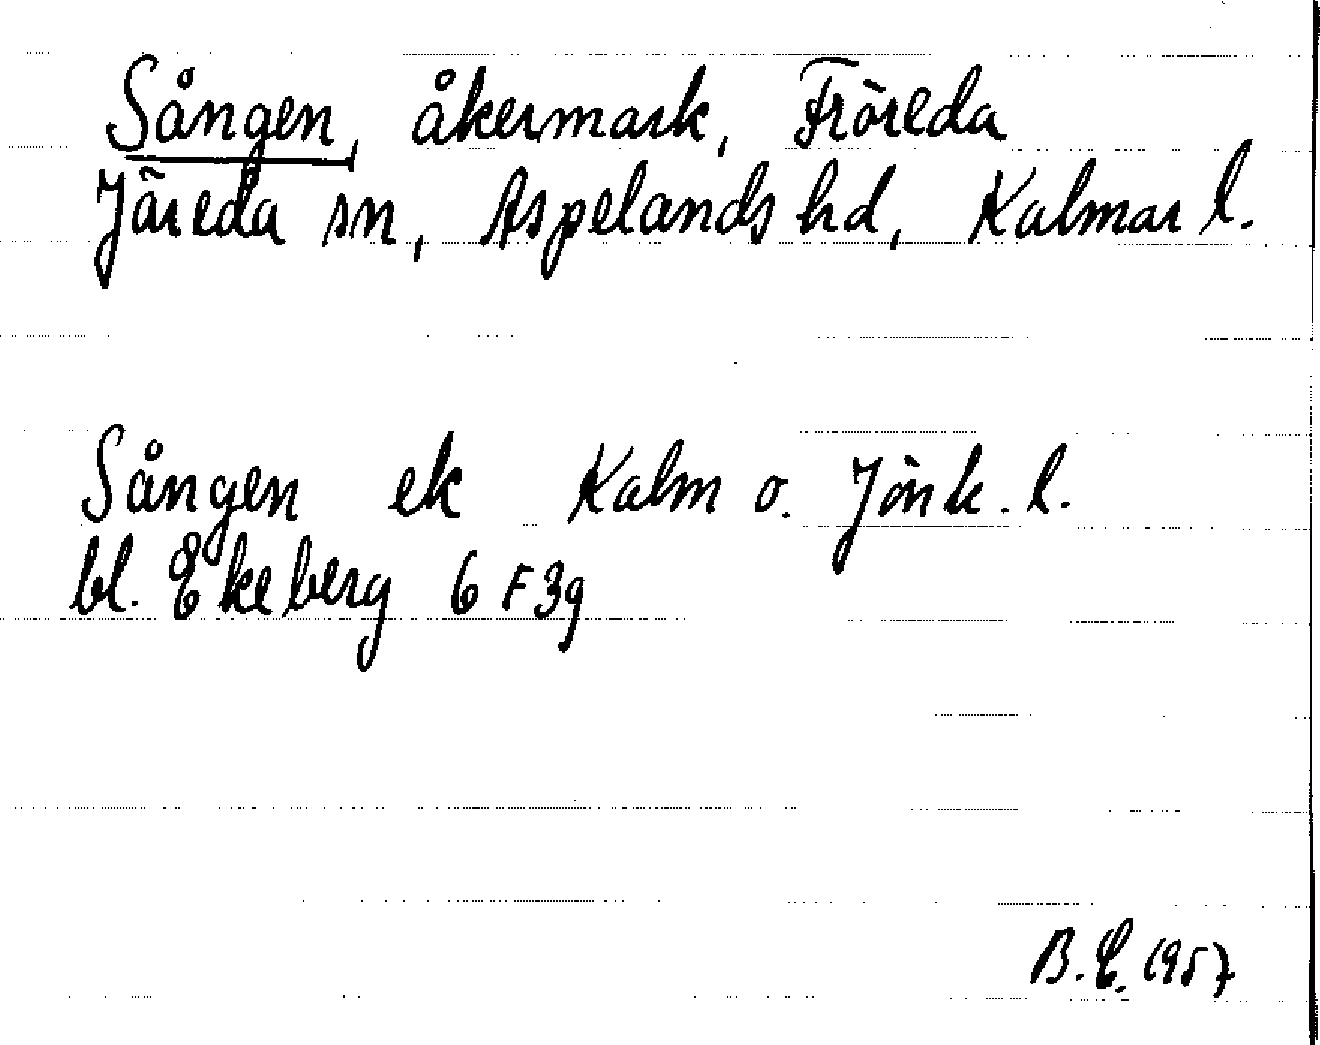 Sången, åkermark, Fröreda
Järeda sn, Aspelands hd, Kalmar l.
Sången ek Kalm o. Jönk. l.
bl. Ekeberg 6 F 3g
B.E. 1957